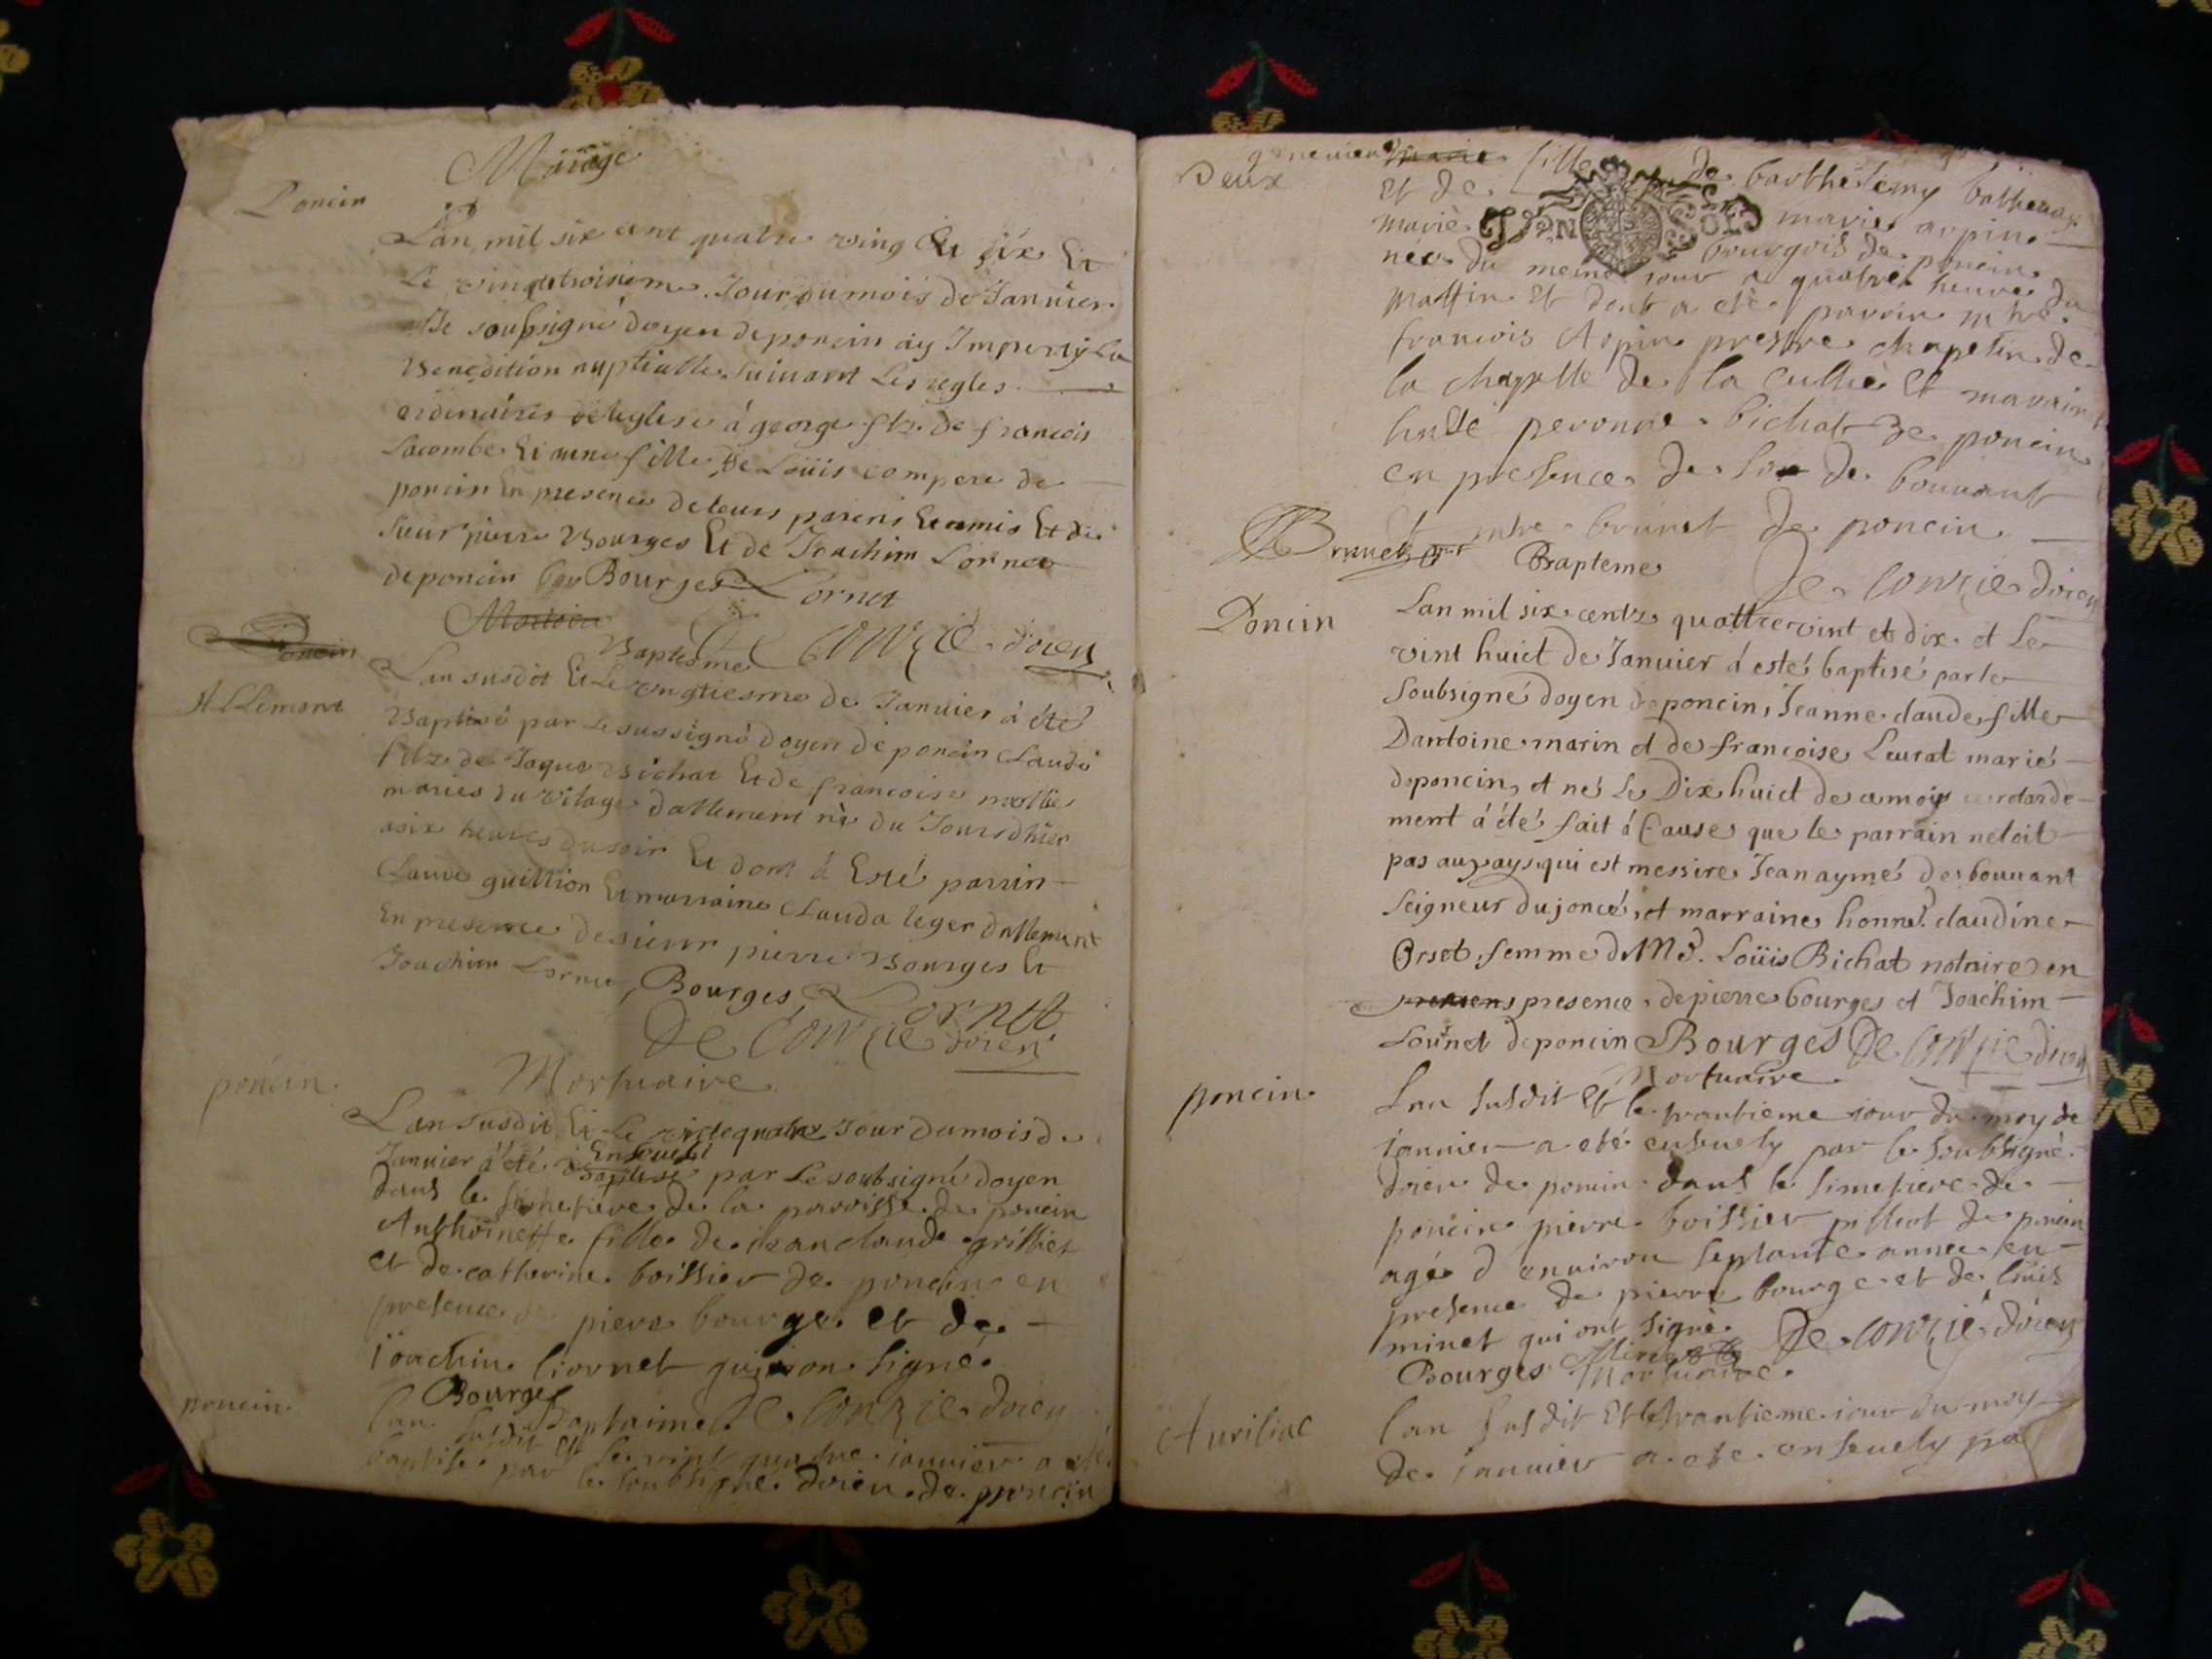 Mariage
Poncin
Lan mil six cent quatre ving Et dix Et
Le vingttroisieme Jour du mois de Januier
Je soubsigné doyen de poncin ay Imperty La
Benedition nuptialle suiuant Les regles
ordinaires de leglise à george filz de francois
Lacombe Et a une fille de Loüis compere de
poncin En presence de leurs parens Et amis Et de
sieur pierre Bourges Et de Joachim Lornet
de poncin Bourges Lornet
De Conzié doien
Baptesme
Poncin
Allement
Lan susdit Et Le vingtiesme de Januier à été
Baptisé par Le sussigné doyen de poncin Claude
filz de Jaque Bichat Et de francoise
mariés du vilage dallement né du Jour dhier
a six heures du soir Et dont à Esté parrin
Claude guillion Et marraine Clauda leger dallement
En presence de sieur pierre Bourges Et
Joachim Lornet Bourges Lornet
De Conzie doien
Mortuaire
poncin
Lan susdit Et Le vintequatre Jour du mois de
Januier à été Enseueli par Le soubsigné doyen
dans le simetiere de la paroisse de poncin
Anthoinette fille de Jean claude grilliet
et de catherine boissier de poncin en
presence de piere bourge et de
ioachin liornet qui on signé
Bourges
De Conzie doien
Baptaime
poncin
lan susdit Et le vint quatre ianuier a eté
baptise par le soubsigné doien de poncin
Deux
geneuieue marie fille de barthelemy
et de marie arpin
mariè bourgois de poncin
née du meme iour a quatre heure du
mattin Et dont a eté parrin mtre
francois Arpin prestre chapelin de
la chapelle de la Et marain
peronne bichat de poncin
en presence de de bouuant
Et mtre brunet de poncin
Brunet
De Conzie doien
Bapteme
Poncin
Lan mil six centz quattrevint et dix et Le
vint huict de Januier à esté baptisé par le
soubsigné doyen de poncin, Jeanne claude fille
Dantoine marin et de francoise Leurat marié
de poncin, et né le Dix huict de ce mois ce retarde-
ment à été fait à Cause que le parrain netoit
pas au pays qui est messire Jean aymé de bouuant
Seigneur dujoncé, et marraine honn. claudine
Orset femme de Me. Loüis Bichat notaire en
presence de pierre bourges et Joachim
Lournet de poncin Bourges De Conzie doien
Mortuaire
poncin
Lan susdit Et le trantieme iour du moy de
ianuier a eté enseuely par le soubsigné
doien de poncin dans le simetiere de
poncin pierre boissier pilliot de poncin
agé d enuiron septante annee en
presence de pierre bourge et de loüis
minet qui ont signé
De Conzié doien
Bourges Minet
Mortuaire
Auriliac
lan susdit Et le trantieme iour du moy
de ianuier a eté enseuely pa